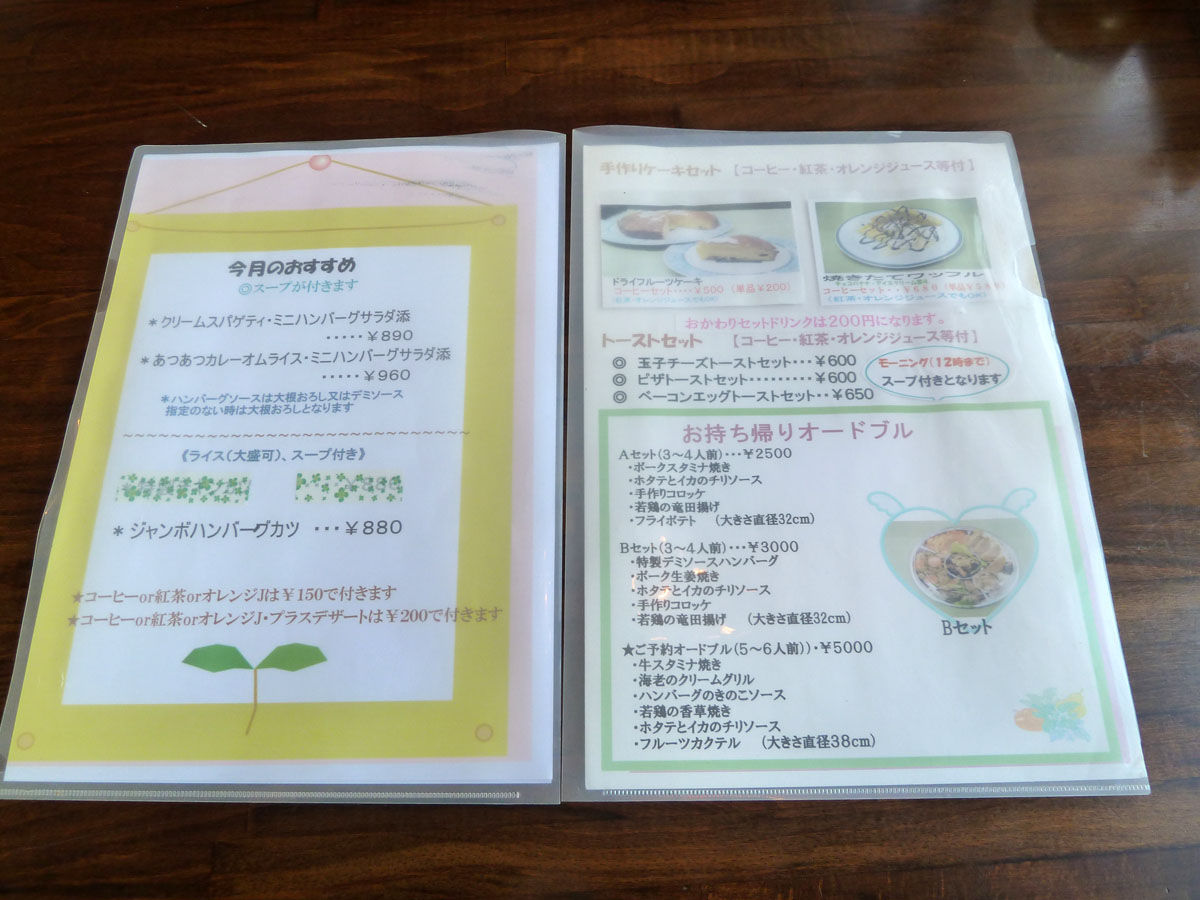 今月のおすすめ
◎スープが付きます
＊クリームスパゲティ・ミニハンバーグサラダ添
・・・・・￥890
＊あつあつカレーオムライス・ミニハンバーグサラダ添
・・・・・￥960
＊ハンバーグソースは大根おろし又はデミソース
指定のない時は大根おろしとなります
～～～～～～～～～～～～～～～～～～～～～～～～～～～～
《ライス（大盛可）、スープ付き》
＊ジャンボハンバーグカツ ・・・￥880
★コーヒーor紅茶orオレンジJは￥150で付きます
★コーヒーor紅茶orオレンジJ・プラスデザートは￥200で付きます
手作りケーキセット 【コーヒー・紅茶・オレンジジュース等付】
ドライフルーツケーキ
コーヒーセット・・・・￥500（単品￥200）
（紅茶・オレンジジュースでもOK）
焼きたてワッフル
コーヒーセット・・￥680（単品￥580）
（紅茶・オレンジジュースでもOK）
おかわりセットドリンクは200円になります。
トーストセット 【コーヒー・紅茶・オレンジジュース等付】
◎ 玉子チーズトーストセット・・・￥600
◎ ピザトーストセット・・・・・・・・・￥600
◎ ベーコンエッグトーストセット・・￥650
モーニング（12時まで）
スープ付きとなります
お持ち帰りオードブル
Aセット（3～4人前）・・・￥2500
・ポークスタミナ焼き
・ホタテとイカのチリソース
・手作りコロッケ
・若鶏の竜田揚げ
・フライポテト （大きさ直径32cm）
Bセット（3～4人前）・・・￥3000
・特製デミソースハンバーグ
・ポーク生姜焼き
・ホタテとイカのチリソース
・手作りコロッケ
・若鶏の竜田揚げ （大きさ直径32cm）
Bセット
★ご予約オードブル（5～6人前））・￥5000
・牛スタミナ焼き
・海老のクリームグリル
・ハンバーグのきのこソース
・若鶏の香草焼き
・ホタテとイカのチリソース
・フルーツカクテル （大きさ直径38cm）